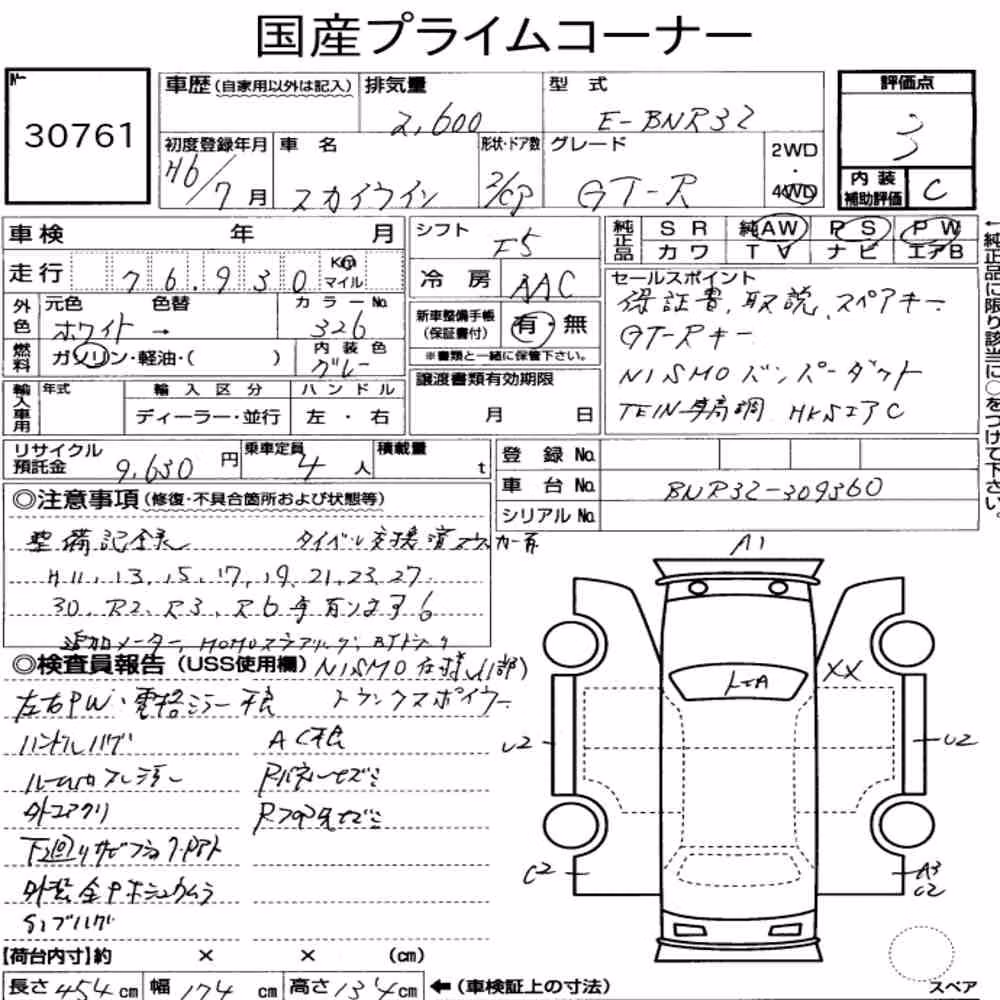 国産プライムコーナー
30761
車歴(自家用以外は記入) 排気量 2,600 型式 E-BNR32 評価点 3
初度登録年月 H6/7月 車名 スカイライン 形状・ドア数 2/CP グレード GT-R 2WD・4WD 内装補助評価 C
車検 年 月 シフト F5 純正品 SR 純AW PS PW
カワ TV ナビ エアB
走行 76,930 Km マイル 冷房 AAC
外色 元色 ホワイト → 色替 カラーNo. 326
新車整備手帳(保証書付) 有・無
※書類と一緒に保管下さい。
燃料 ガソリン・軽油・( ) 内装色 グレー
セールスポイント
保証書、取説、スペアキー
GT-Rキー
NISMOバンパーダクト
TEIN車高調 HKSエアC
←純正品に限り該当に○をつけて下さい。
輸入車用 年式 輸入区分 ディーラー・並行 ハンドル 左・右
譲渡書類有効期限 月 日
リサイクル預託金 9,630円 乗車定員 4人 積載量 t
登録No.
車台No. BNR32-309360
シリアルNo.
◎注意事項(修復・不具合箇所および状態等)
整備記録 タイベル交換済
H11、13、15、17、19、21、23、27
30、R2、R3、R6 有ります
追加メーター、MOMOステアリング、
◎検査員報告(USS使用欄) NISMO仕様(1部)
左右PW・電格ミラー不良 トランクスポイラー
ハンドルハゲ AC不良
外エアクリ
下廻りサビ
A1
XX
U2
U2
C2
A3
C2
【荷台内寸】約 × × (cm)
長さ 454 cm 幅 174 cm 高さ 134 cm ←(車検証上の寸法)
スペア